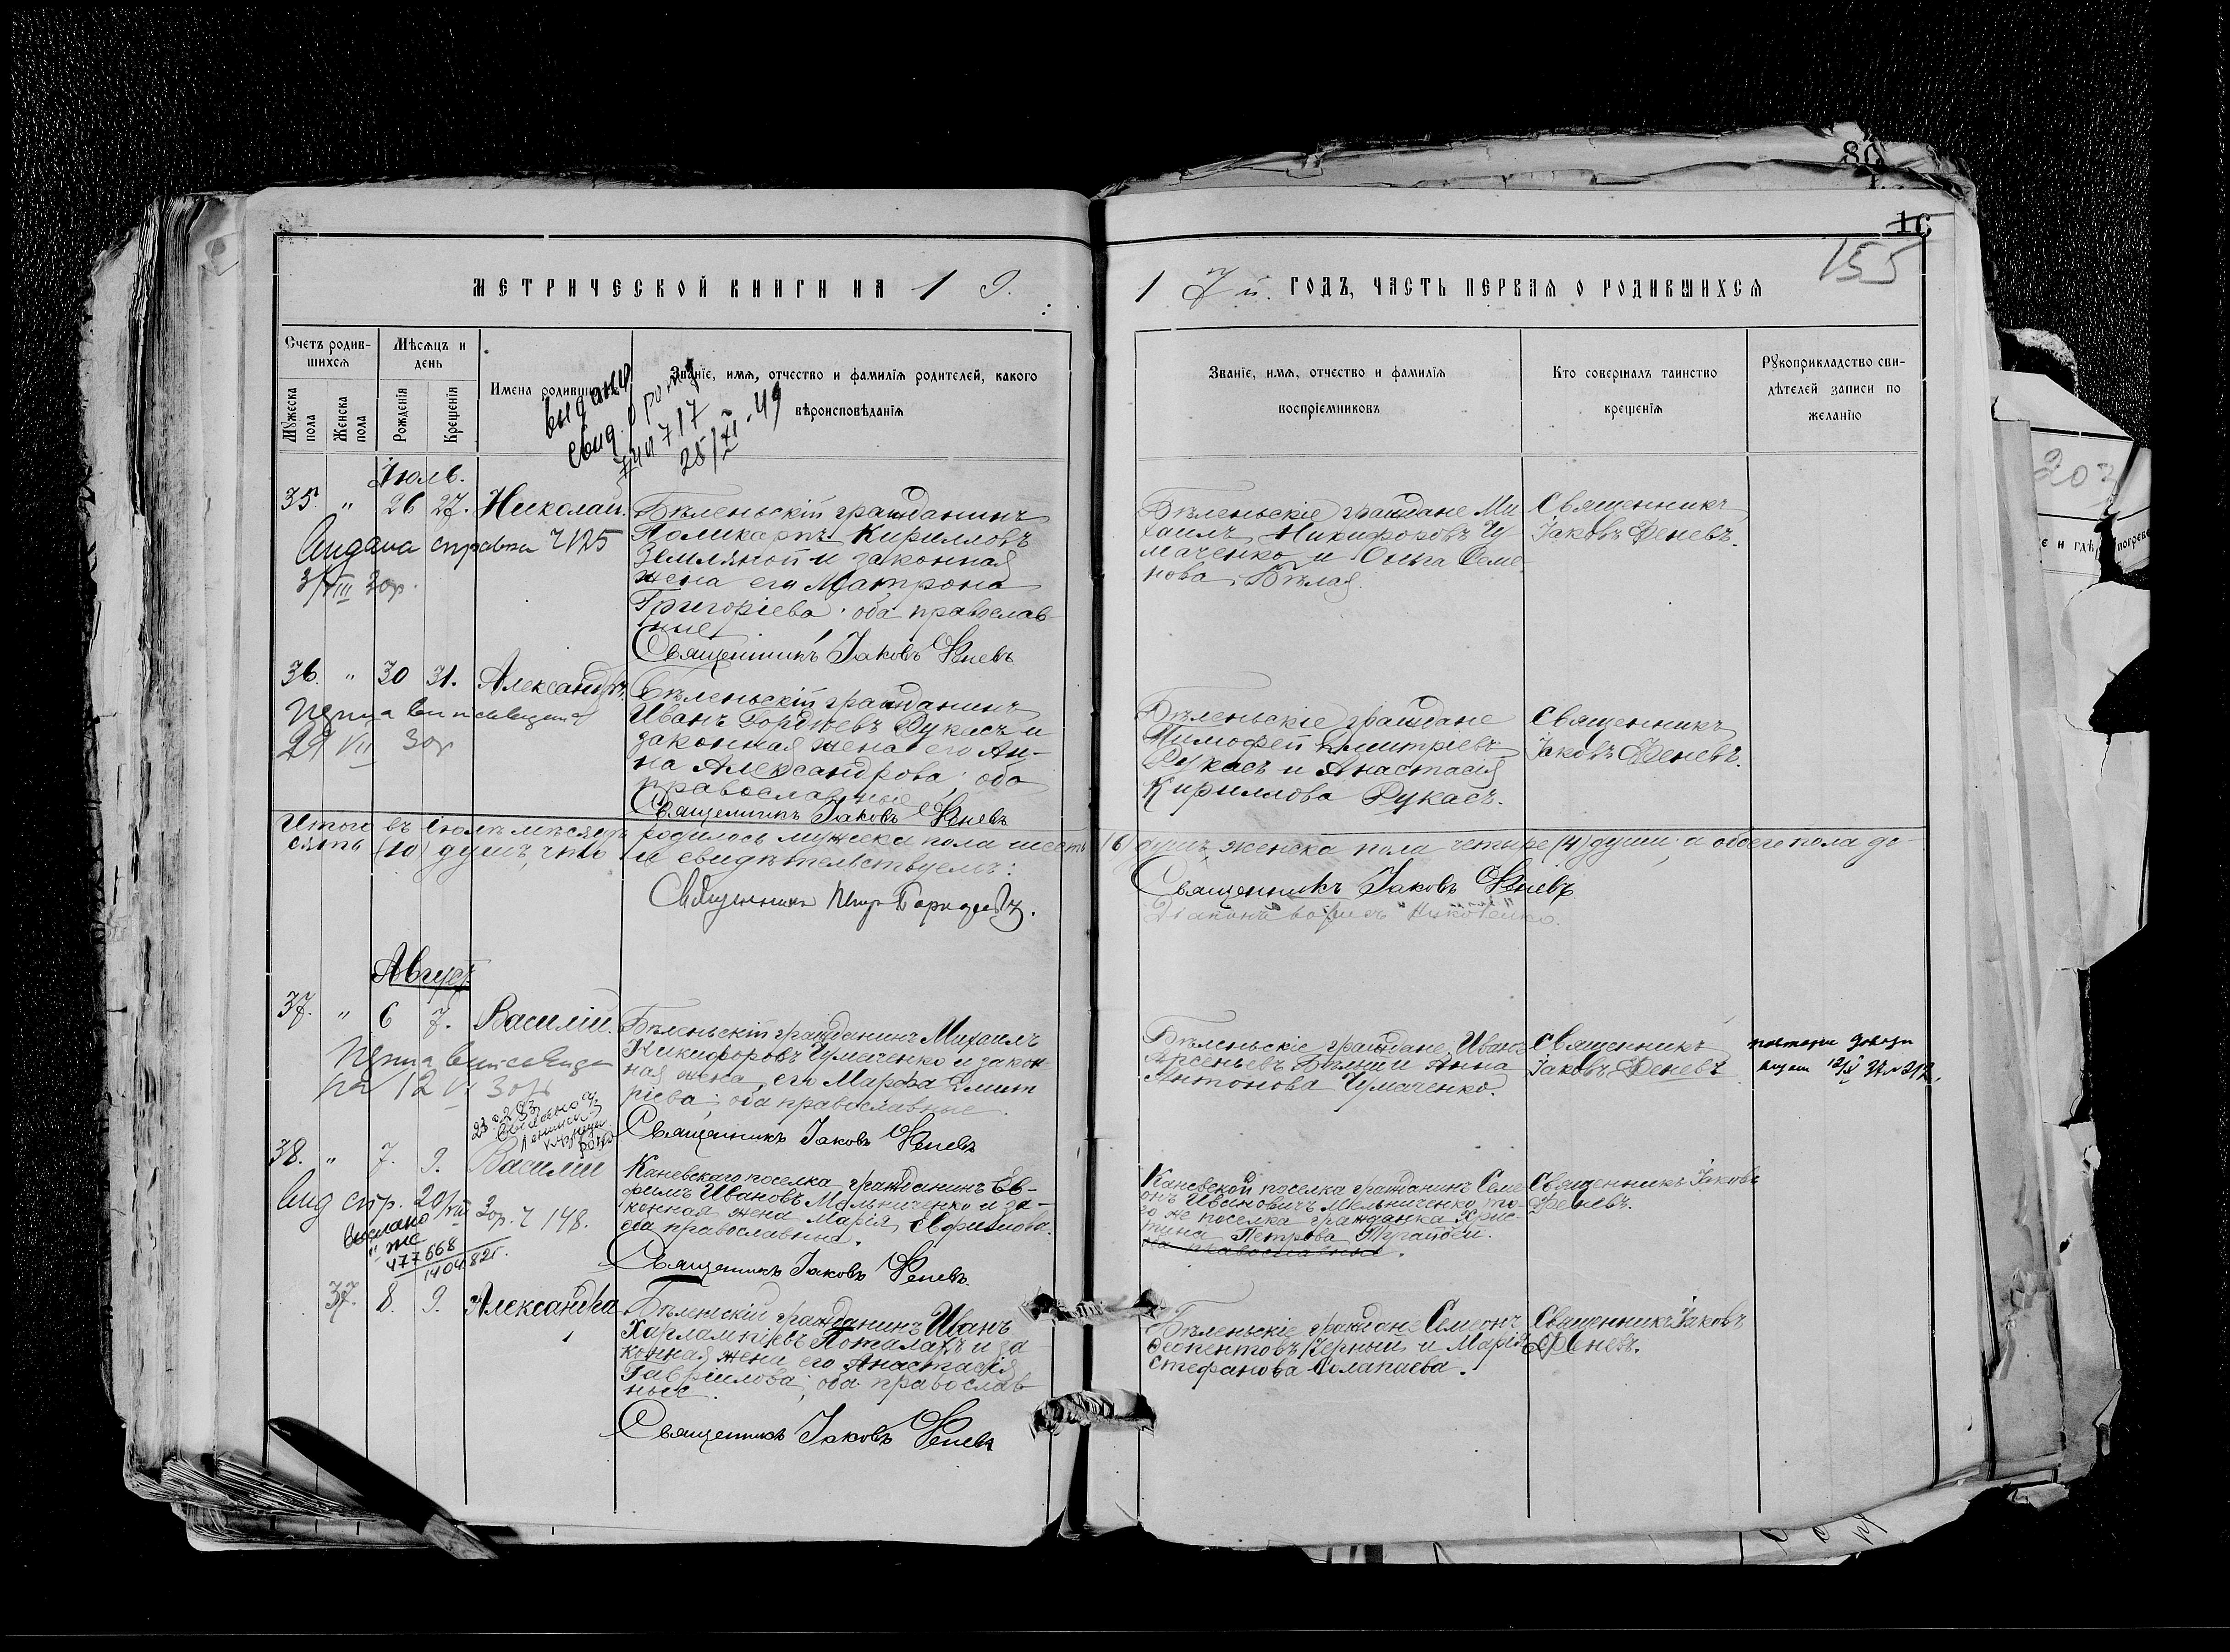 80
16
155
МЕТРИЧЕСКОЙ КНИГИ НА 1 9.
1 7 й. ГОДЪ, ЧАСТЬ ПЕРВАЯ О РОДИВШИХСЯ
Счетъ родив-
шихся
Мужеска пола
Женска пола
Мѣсяцъ и
день
Рожденія
Крещенія
Имена родившихся
Званіе, имя, отчество и фамилія родителей, какого
вѣроисповѣданія
Званіе, имя, отчество и фамилія
воспріемниковъ
Кто совершалъ таинство
крещенія
Рукоприкладство сви-
дѣтелей записи по
желанію
203
е и гдѣ погреб
28/XI-49
Іюль.
35. " 26 27. Николай.
Бѣленьскій гражданинъ
Поликарпъ Кирилловъ
Земляной и законная
жена его Матрона
Григоріева, оба православ
ные
Священникъ Іаковъ Феневъ
Бѣленьскіе граждане Ми
хаилъ Никифоровъ Чу
маченко и Ольга Семе
нова Бѣлая.
Священникъ
Іаковъ Феневъ.
справка 2125
36. " 30 31. Александръ.
Бѣленьскій гражданинъ
Иванъ Гордѣевъ Рукасъ и
законная жена его Ан-
на Александрова; оба
православные
Священникъ Іаковъ Феневъ
Бѣленьскіе граждане
Тимофей Димитріевъ
Рукасъ и Анастасія
Кириллова Рукасъ.
Священникъ
Іаковъ Феневъ.
29 VII 30г
Итого въ Іюлѣ мѣсяцѣ родилось мужеска пола шесть (6) душъ, женска пола четыре (4) души; а обоего пола де-
сять (10) душъ, что и свидѣтельствуемъ:
Священникъ
Священникъ Іаковъ Феневъ
Діаконъ
Августъ
37. " 6 7. Василій.
Бѣленьскій гражданинъ Михаилъ
Никифоровъ Чумаченко и закон
ная жена его Марфа Димит
ріева; оба православные
Священникъ Іаковъ Феневъ
Бѣленьскіе граждане Иванъ
Арсеньевъ Бѣлый и Анна
Антонова Чумаченко.
Священникъ
Іаковъ Феневъ
12 VI 30г
38. " 7. 9. Василій
Каневскаго поселка гражданинъ Ев-
фимъ Ивановъ Мельниченко и за-
конная жена Марія Евфимова
оба православные.
Священникъ Іаковъ Феневъ
Каневской поселка гражданинъ Семе
онъ Ивановичъ Мельниченко, то-
го же поселка гражданка Хрис-
тина Петрова
Священникъ Іаковъ
Феневъ.
477668
37. 8. 9. Александра
Бѣленьскій гражданинъ Иванъ
Харлампіевъ и за
конная жена его Анастасія
Гавриилова; оба православ
ные.
Священникъ Іаковъ Феневъ
Бѣленьскіе граждане Семеонъ
Леонтовъ Черный и Марія
Стефанова
Священникъ Іаковъ
Феневъ.